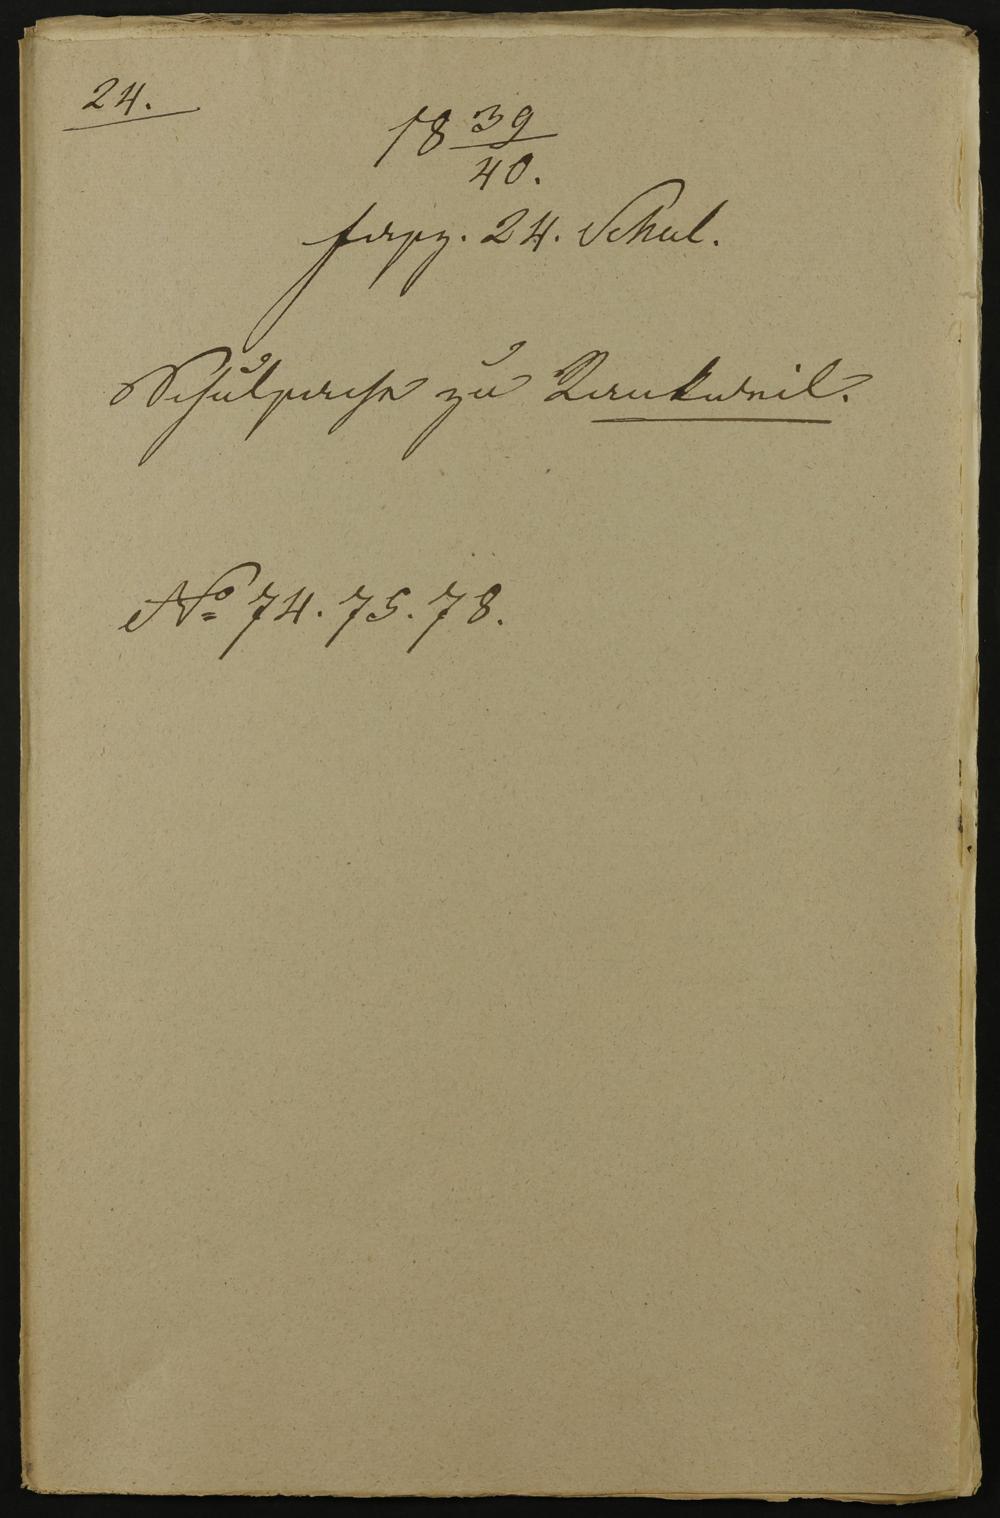 24.
18 39/40.
fasz. 24. Schul.
Schulsache zu Rankweil.
No 74. 75. 78.